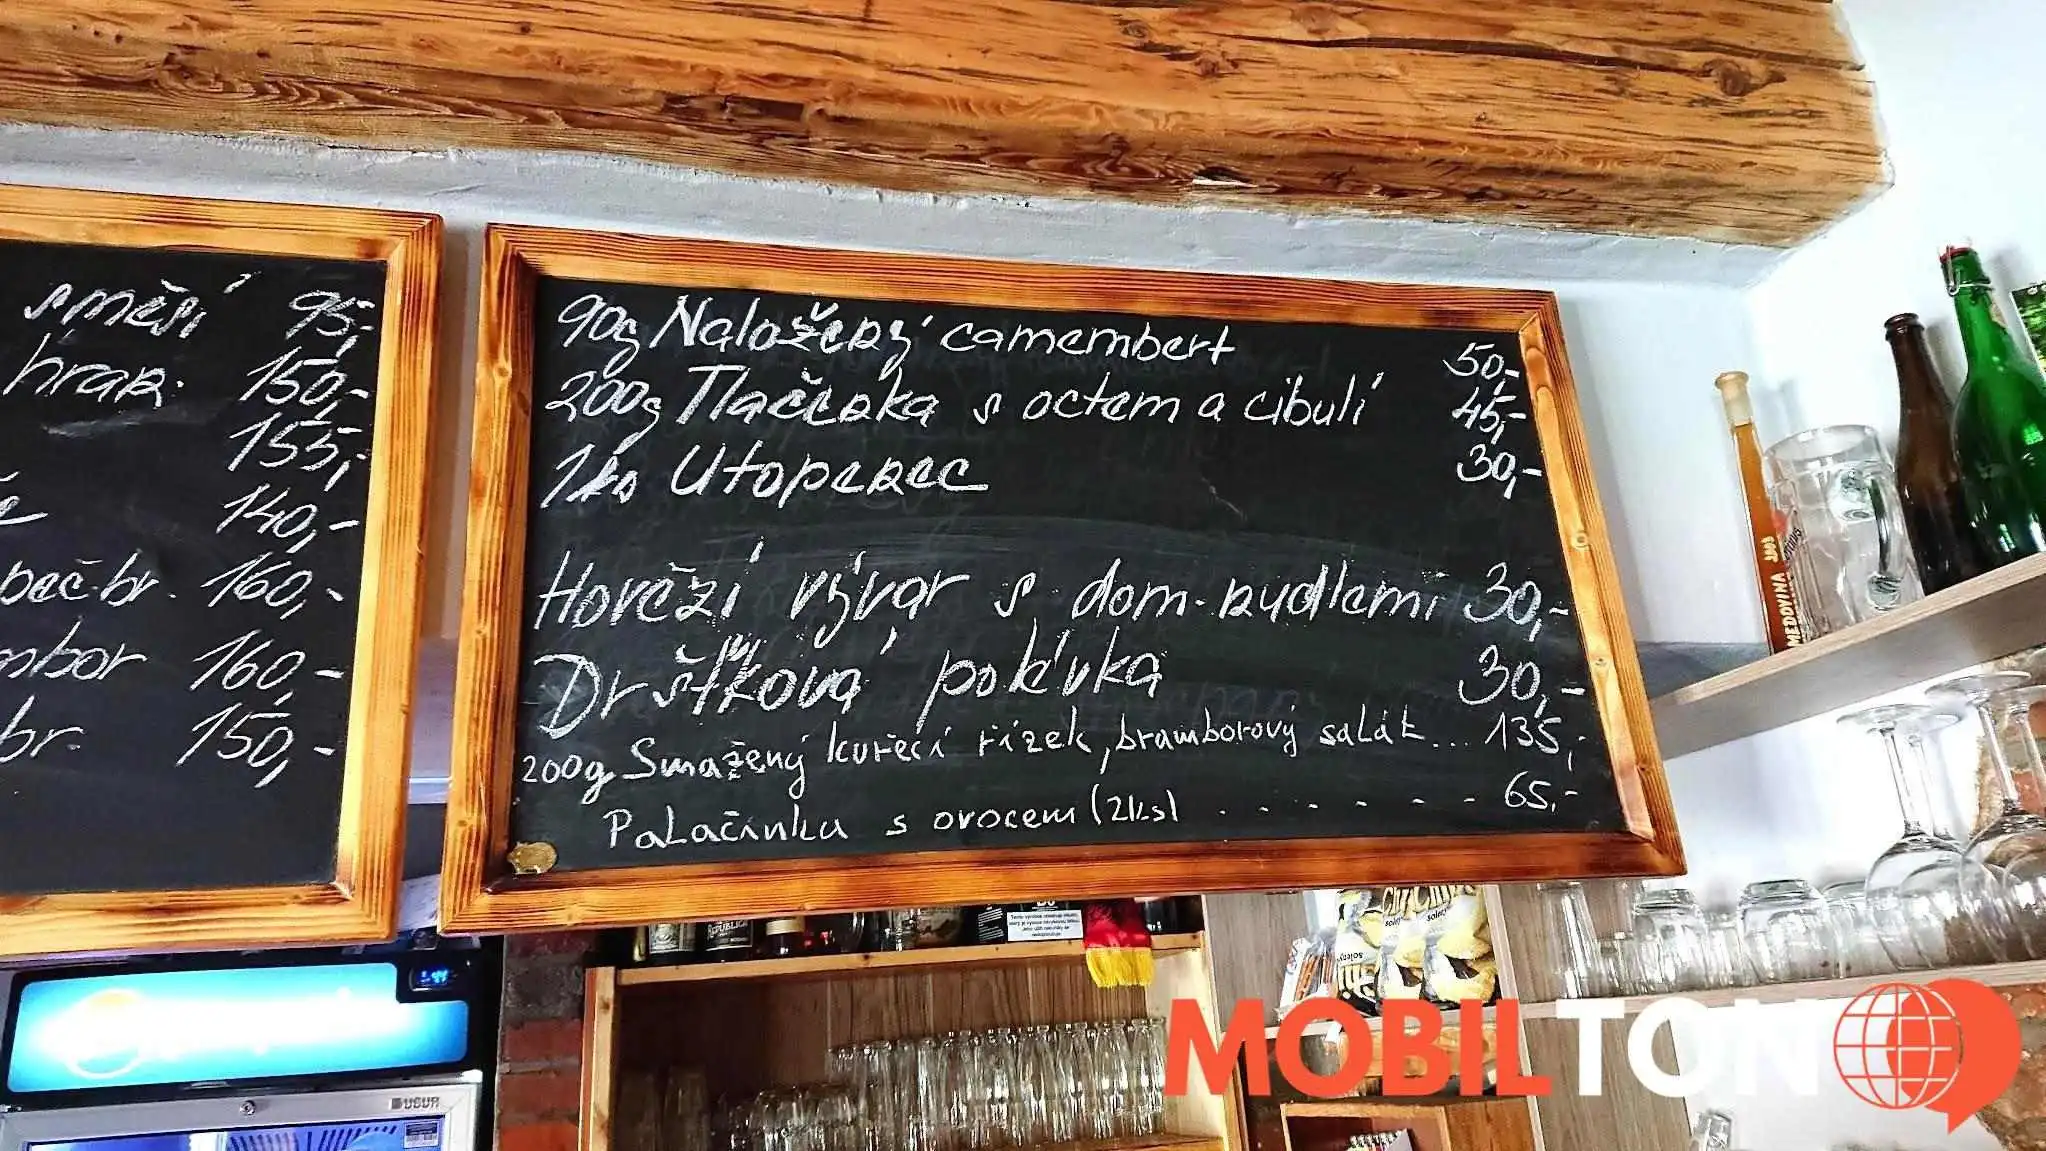 směsí 95,-
hran. 150,-
155,-
140,-
peč.br. 160,-
mbor 160,-
br. 150,-
90g Naložený camembert 50,-
200g Tlačenka s octem a cibulí 45,-
1ks Utopenec 30,-
Hovězí vývar s dom. nudlemi 30,-
Dršťková polévka 30,-
200g Smažený kuřecí řízek, bramborový salát... 135,-
Palačinku s ovocem (2ks) . . . . . . . 65,-
MEDOVINA
REPUBLICA
CHIPS
solený
solený
UGUR
MOBILTON